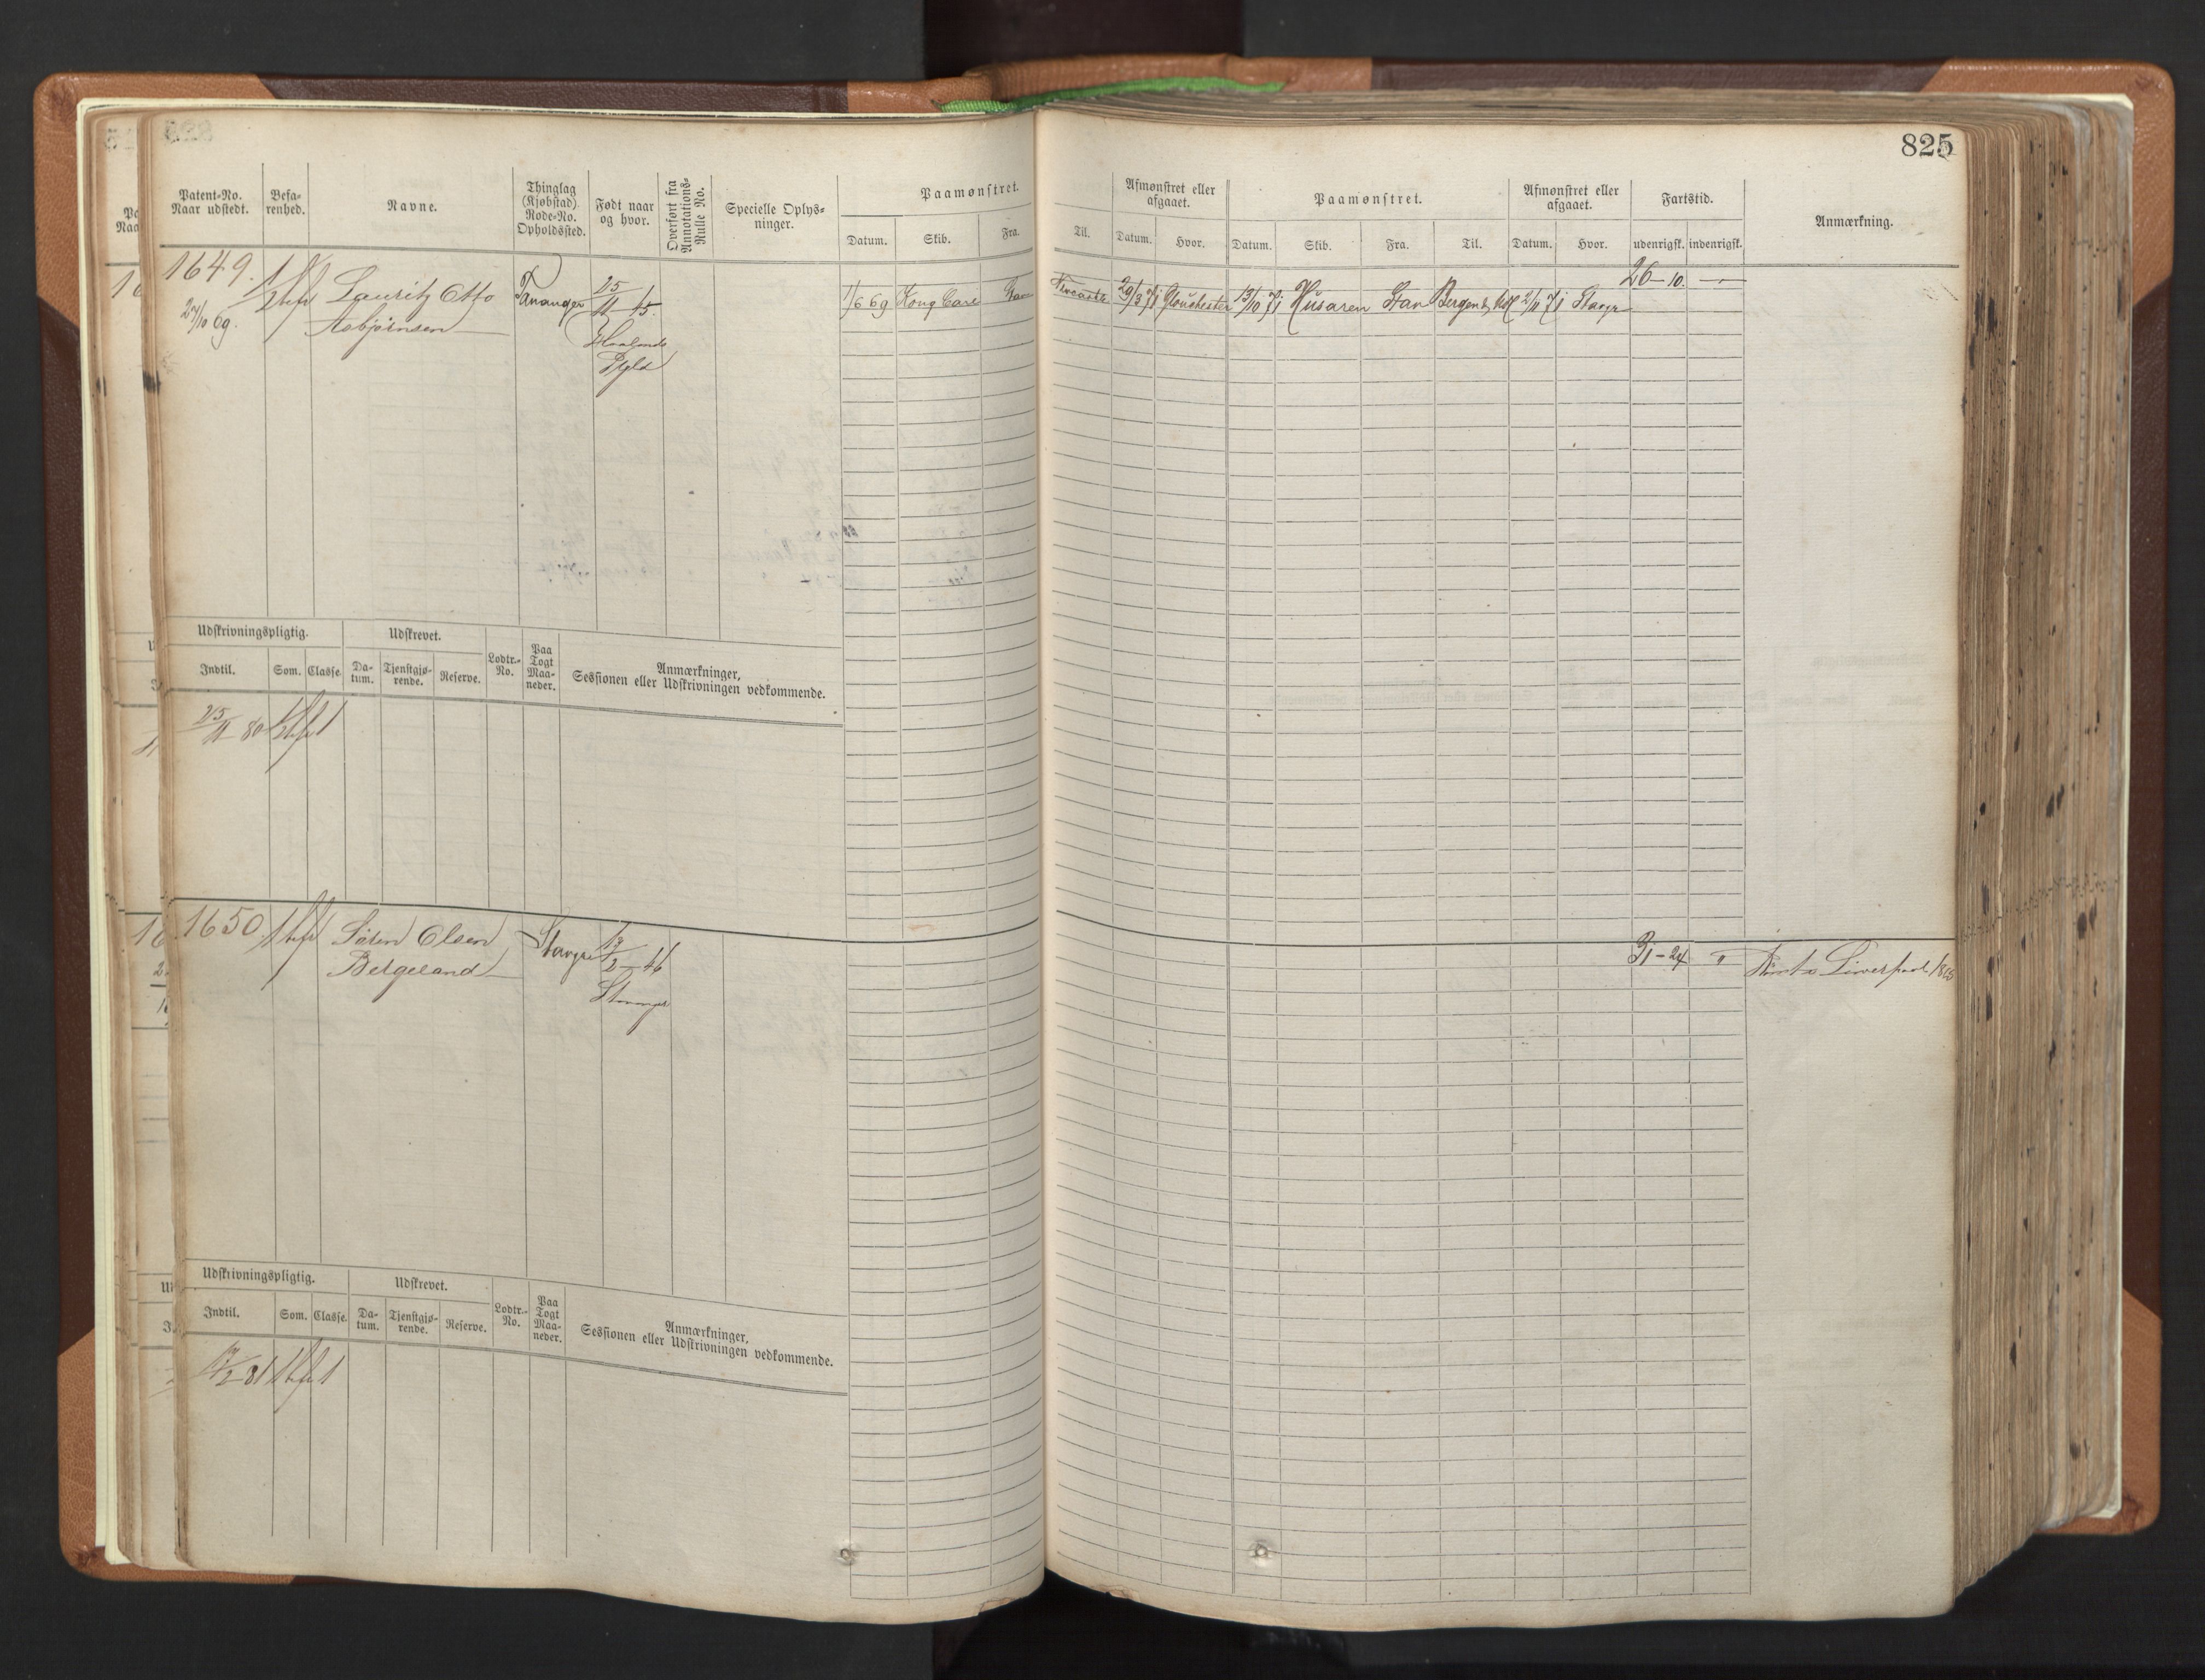 825
Patent-No.
Naar udstedt.
Befa-
renhed.
Navne.
Thinglag
(Kjøbstad)
Rode-No.
Opholdssted.
Født naar
og hvor.
Overført fra
Annotations-
Rulle No.
Specielle Oplys-
ninger.
Paamønstret.
Datum. Skib. Fra.
Til.
Afmønstret eller
afgaaet.
Datum. Hvor.
Paamønstret.
Datum. Skib. Fra. Til.
Afmønstret eller
afgaaet.
Datum. Hvor.
Fartstid.
udenrigsk. indenrigsk.
Anmærkning.
1649.
27/10 69.
Lauritz Otto
Asbjørnsen
Tananger
25/11 45.
Haalands
Pgld
1/6 69 Kong Carl Stav
Newcastle 29/3 71 Glouchester 13/10 71 Husaren Stav Bergen 2/11 71 Stavgr
26-10. -"-
Udskrivningspligtig.
Indtil. Som. Classe.
Udskrevet.
Da-
tum.
Tjenstgjø-
rende.
Reserve.
Lodtr.-
No.
Paa
Togt
Maa-
neder.
Anmærkninger,
Sessionen eller Udskrivningen vedkommende.
25/11 80 1
1650.
Søren Olsen
Bergeland
Stavgr
17/2 46
Stavanger
31-24 "
Rømt i Liverpool 1865
Udskrivningspligtig.
Indtil. Som. Classe.
Udskrevet.
Da-
tum.
Tjenstgjø-
rende.
Reserve.
Lodtr.-
No.
Paa
Togt
Maa-
neder.
Anmærkninger,
Sessionen eller Udskrivningen vedkommende.
17/2 81 1